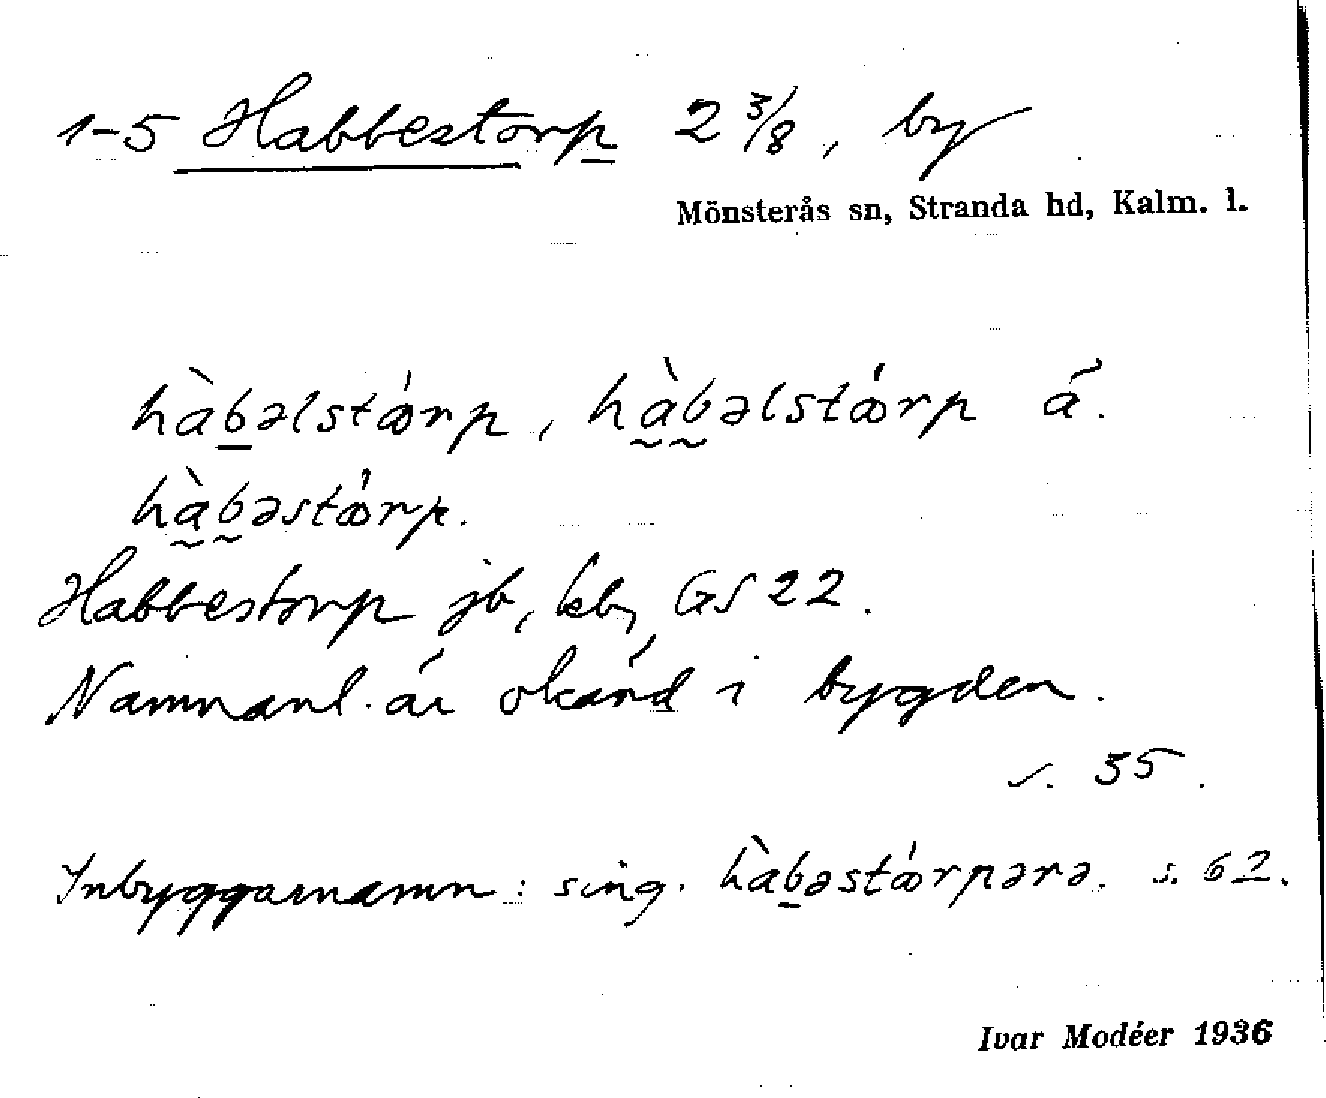 1-5 Habbestorp 2 3/8, by
Mönsterås sn, Stranda hd, Kalm. l.
hàbəlstǿrp, hàbəlstǿrp ā́.
hàbəstǿrp.
Habbestorp jb, kb, GS 22.
Namnanl. är okänd i bygden.
s. 55.
Inbyggarnamn: sing. hàbəstǿrpərə. s. 62.
Ivar Modéer 1936